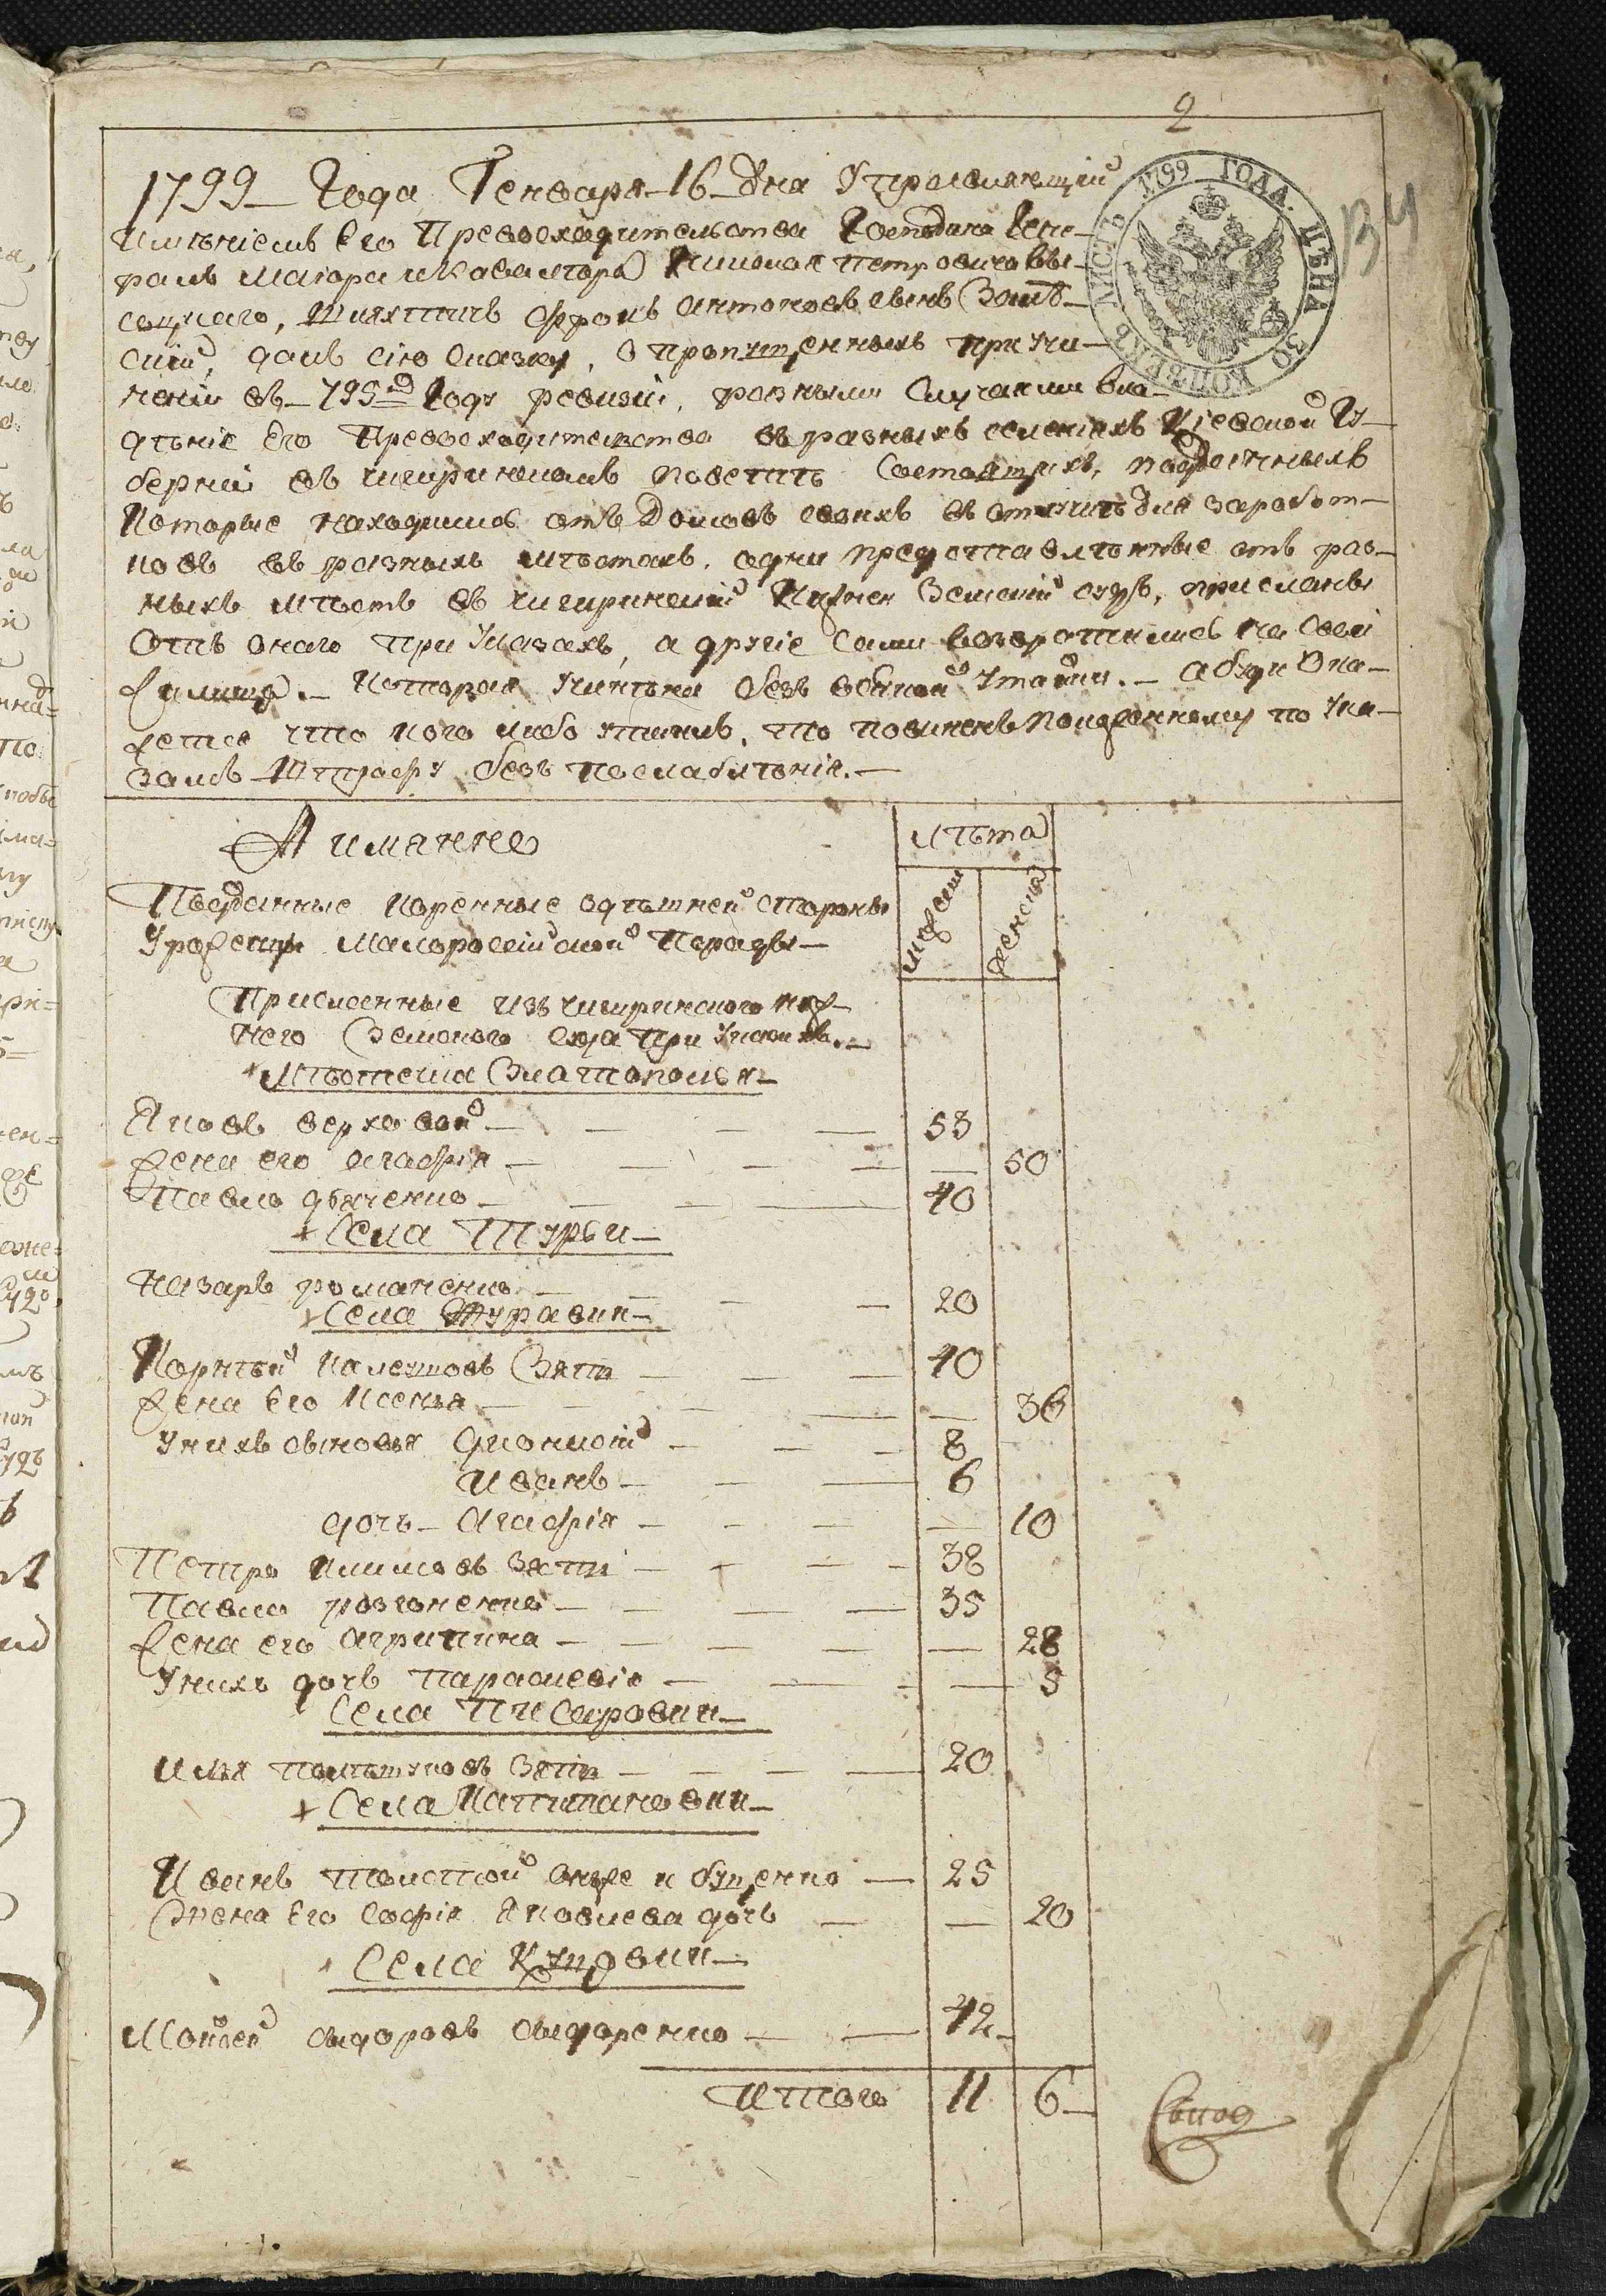 2
1799 ГОДА. ЦѢНА 30 КОПѢЕКЪ ЛИСТЪ
1799 Года Генваря 16 дня Управляющій
имѣніемъ Его Превосходительства Господина Гене-
ралъ Маіора и Кавалера Николая Петровича Вы-
соцкаго, Шляхтичъ Антоновъ сынъ
далъ сію сказку, о пропущенныхъ при учи-
неній въ 795й Году ревизіи, разными случаями вла-
дѣніе Его Превосходительства въ разныхъ селеніяхъ Кіевской Гу-
берніи въ Чигиринскомъ поветѣ Состоящихъ, подданныхъ
Которые находились отъ Домовъ своихъ въ отлучкѣ для заработ-
ковъ въ разныхъ мѣстахъ, одни представлѣнные отъ раз-
ныхъ мѣстъ въ Чигиринскій Нижней Земскій судъ, присланы
Отъ онаго при Указахъ, а другіе Сами возвратились на Свои
жилища. Которая учинѣна безъ всякой утайки. А буди Ока-
жется что кого либо утаилъ, то повиненъ положенному по Ука-
замъ Штрафу безъ послаблѣнія.
А имянно
лѣта
мужеска
женска
Подданные коренные здѣшней стороны
Уроженцы Малоросійской Породы
Присланные изъ Чигиринского ниж-
него Земского суда при Указахъ.
Мѣстечка Златополья
Яковъ верховой 53
жена его агафія 50
Павло дьяченко 40
Села Турьи
Назаръ романенко 20
Села Журавки
Корнѣй Зять 40
жена Его Ксенья 36
У нихъ сыновья Дионисій 8
Иванъ 6
дочь Агафія 10
Петро Климовъ зять 38
Павло розгоненко 35
жена его агрипина 28
У нихъ дочь Параскевія 5
Села Писаровки
Илья Зять 20
Села Капитановки
Иванъ Толстой онже и 25
Жена Его Софія Яковлева дочь 20
Села
Мойсей сыдоровъ сыдоренко 42
Итого 11 6